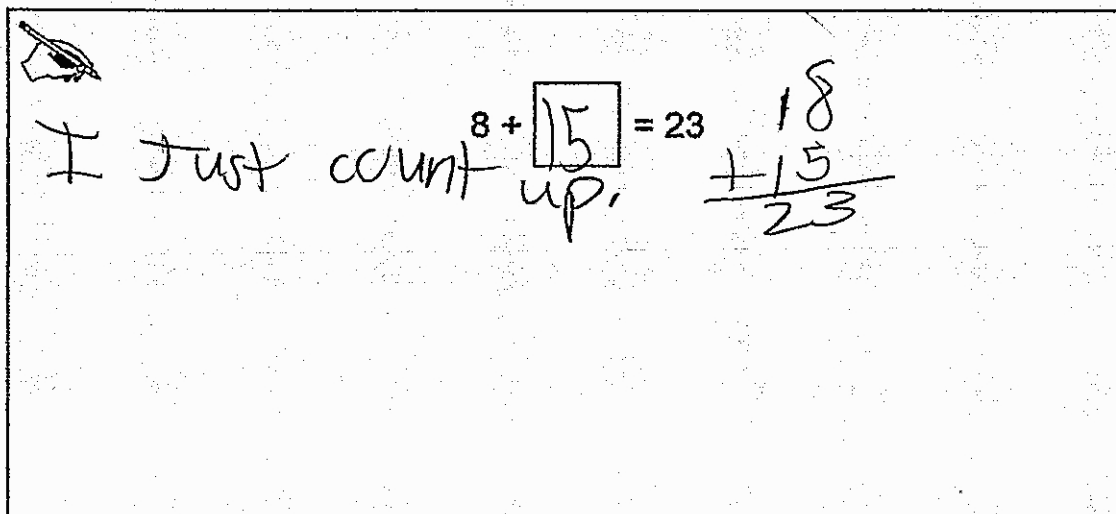 8 + 15 = 23
I Just count up.
18
+15
23